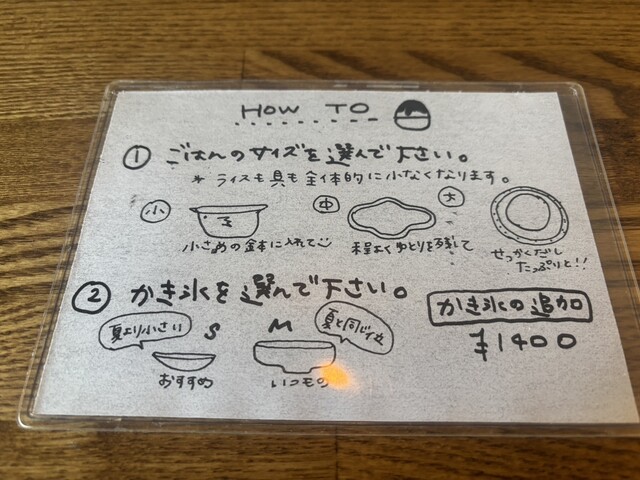 HOW TO
① ごはんのサイズを選んで下さい。
* ライスも具も全体的に小なくなります。
小 中 大
小さめの鉢に入れて
程よくゆとりを残して
せっかくだし
たっぷりと!!
② かき氷を選んで下さい。
かき氷の追加
¥1400
夏より小さい S M 夏と同じ位
おすすめ いつもの